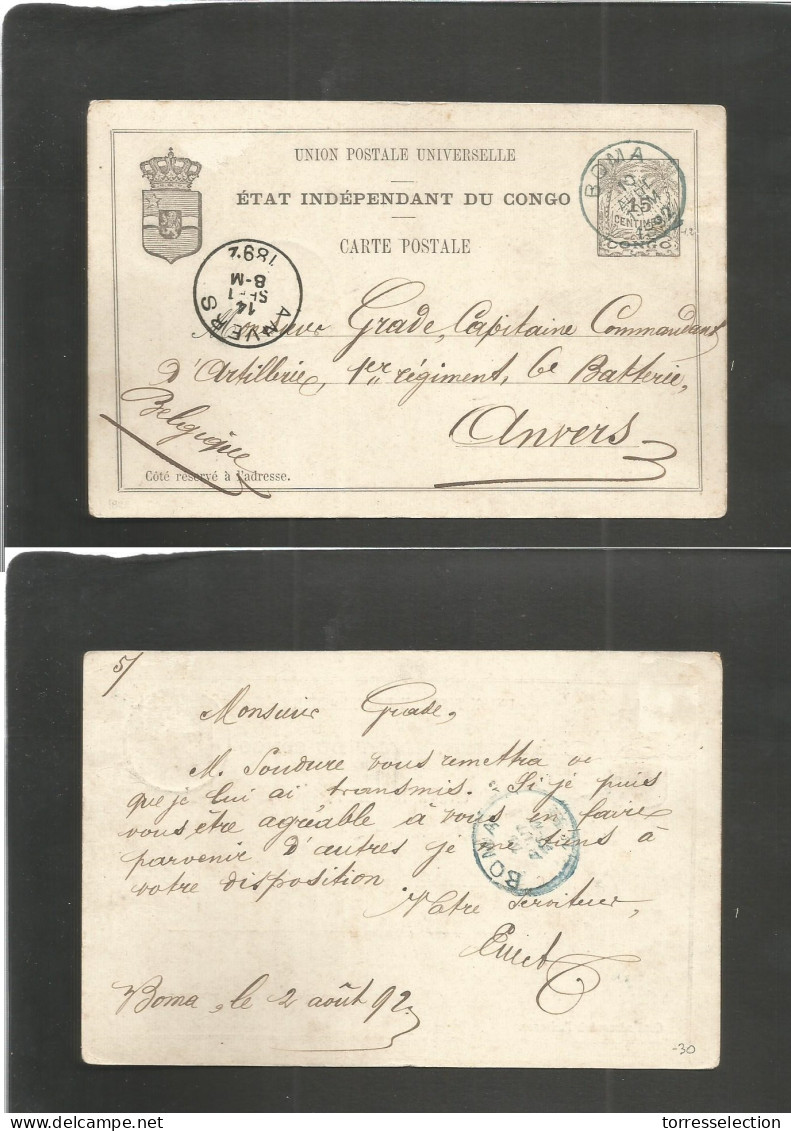 UNION POSTALE UNIVERSELLE
ÉTAT INDÉPENDANT DU CONGO
CARTE POSTALE
BOMA
15
CENTIMES
CONGO
ANVERS
14
SEPT
8-M
1892
Monsieur Grade, Capitaine Commandant
d'Artillerie, 1er régiment, 6e Batterie,
Anvers
Belgique
Côté réservé à l'adresse.
5/
Monsieur Grade,
M. Soudure vous remettra ce
que je lui ai transmis. Si je puis
vous être agréable à vous en faire
parvenir d'autres je me tiens à
votre disposition
Votre Serviteur,
BOMA
Boma, le 2 août 92.
-30
torresselection